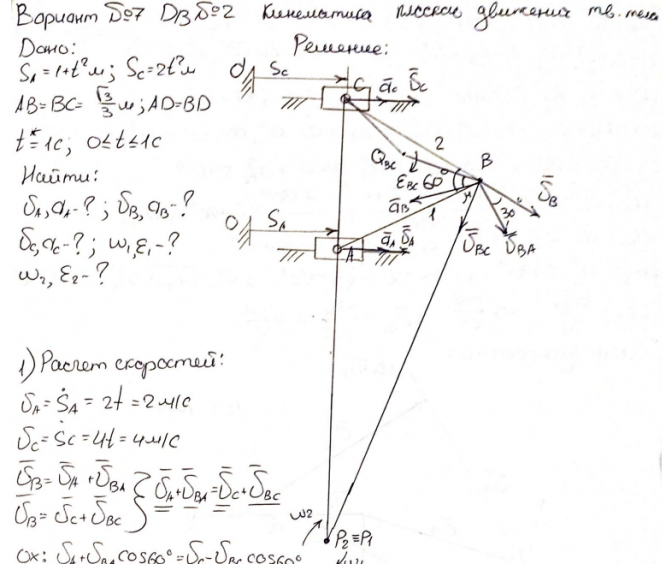 Вариант №7 DВ №2 Кинематика плоского движения тв. тела
Дано:
Решение:
S_A = 1+t² м; S_C = 2t² м
AB = BC = √3/3 м; AD = BD
t* = 1c; 0≤t≤1c
Найти:
υ_A, a_A - ?; υ_B, a_B - ?
υ_C, a_C - ?; ω₁, ε₁ - ?
ω₂, ε₂ - ?
O S_C
C a̅_C υ̅_C
2
Q_BC
B
ε_BC 60°
υ̅_B
a̅_B
30°
1
O S_A
υ̅_BC
υ̅_BA
A a̅_A υ̅_A
1) Расчет скоростей:
υ_A = Ṡ_A = 2t = 2 м/с
υ_C = Ṡ_C = 4t = 4 м/с
υ̅_B = υ̅_A + υ̅_BA
υ̅_B = υ̅_C + υ̅_BC
υ̅_A + υ̅_BA = υ̅_C + υ̅_BC
ω₂
P₂ ≡ P₁
Ox: υ_A + υ_BA cos60° = υ_C - υ_BC cos60°